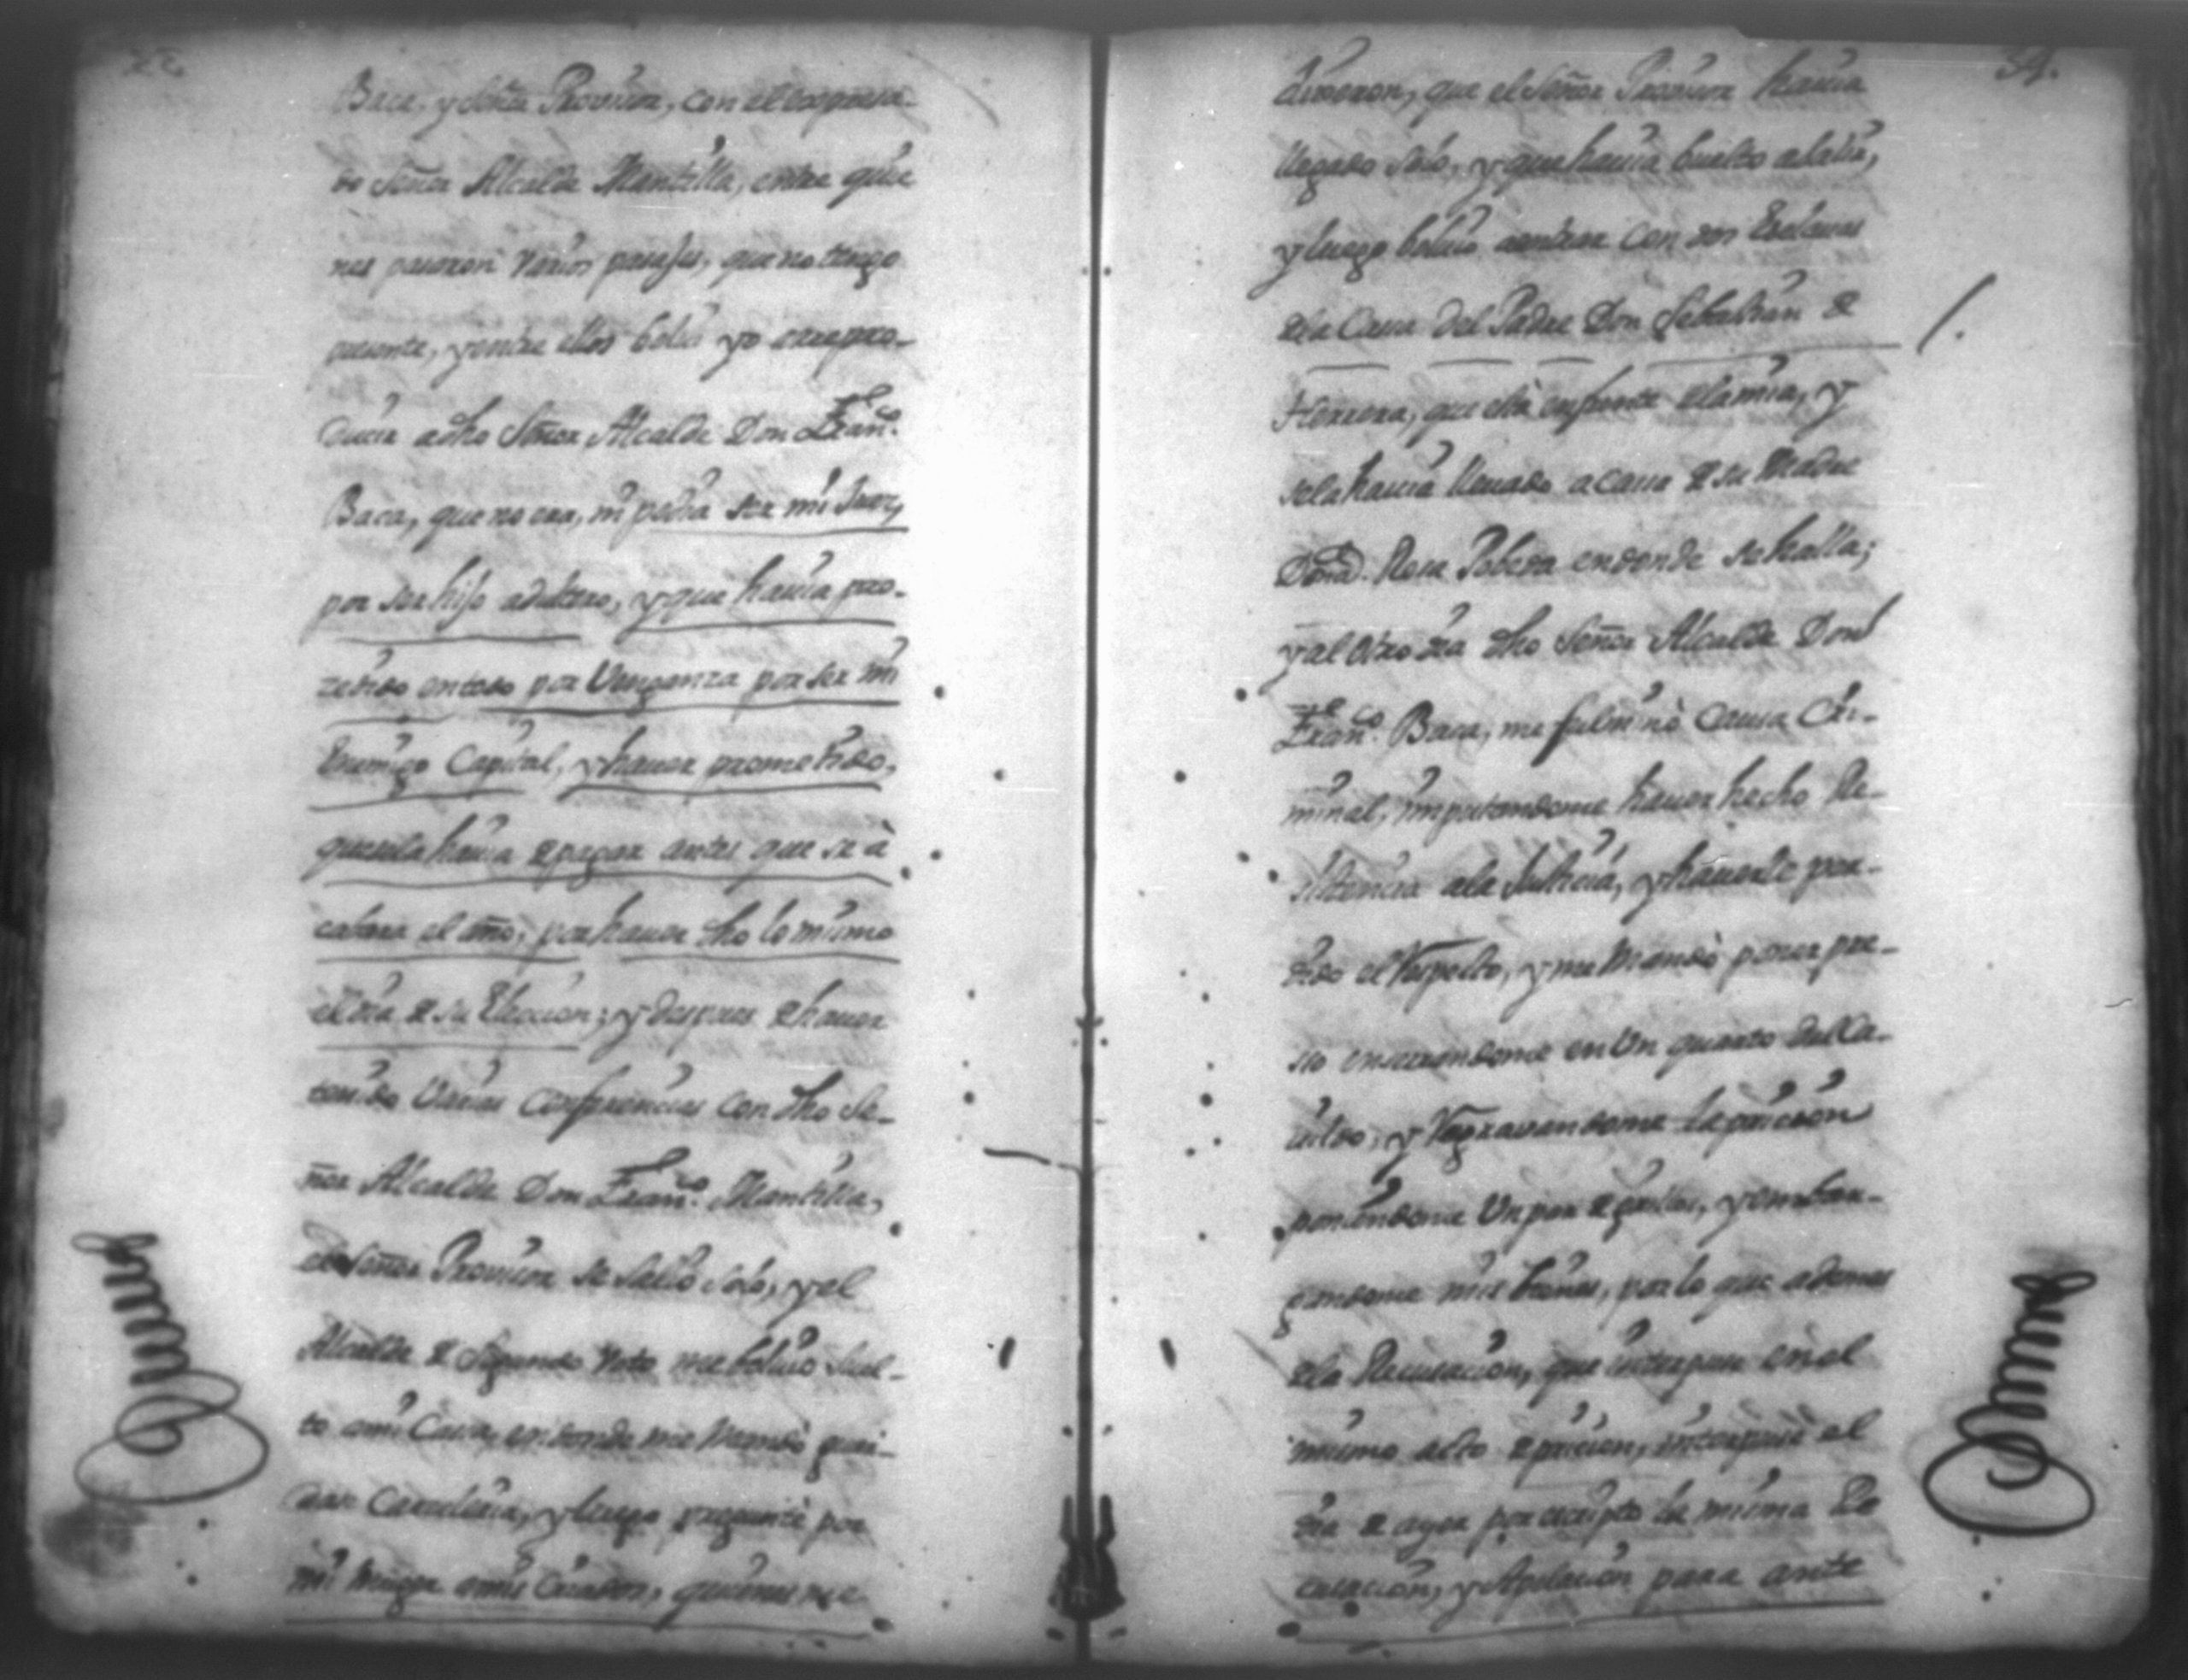 Baca, y Señor Provisor, con el expresa-
do Señor Alcalde Mantilla, entre quie
nes pasaron varios pasajes, que no tengo
presente, y entre ellos bolbi yo a repro-
ducir a dho Señor Alcalde Don Fran.co
Baca, que no era, ni podia ser mi Juez,
por ser hijo adultero, y que havia pro-
zedido en todo por Venganza por ser mi
Enemigo Capital, y haver prometido,
que se la havia de pagar antes que se a
cabara el año, por haver dho lo mismo
el dia de su Eleccion; y despues de haver
tenido Varias Conferencias con dho Se-
ñor Alcalde Don Fran.co Mantilla,
el Señor Provisor se Salio solo, y el
Alcalde de Segundo Voto me bolvio Suel-
to a mi Casa, en donde me Mandó guar-
dar Carceleria, y luego pregunté por
mi Muger a mis Criados, quienes me
34.
dixeron, que el Señor Provisor havia
llegado solo, y que havia buelto a salir,
y luego bolvio a entrar con dos Esclavas
de la Casa del Padre Don Sebastian de
Herrera, que está enfrente de la mia, y
se la havia llevado a casa de su Madre
Doña Rosa Pobeda en donde se halla;
y al otro dia dho Señor Alcalde Don
Fran.co Baca, me fulminó Causa Cri-
minal, imputandome haver hecho Re-
sistencia a la Justicia, y haverle per-
dido el Respecto, y me Mandó poner pre-
so encerrandome en Un quarto del Ca-
vildo, y Ragravandome la pricion
poniendome Un par de grillos, y embar-
gandome mis bienes, por lo que ademas
de la Recusacion, que interpuse en el
mismo acto de pricion, interpuse el
dia de ayer por escripto la misma Re
cusacion, y Apelacion para ante